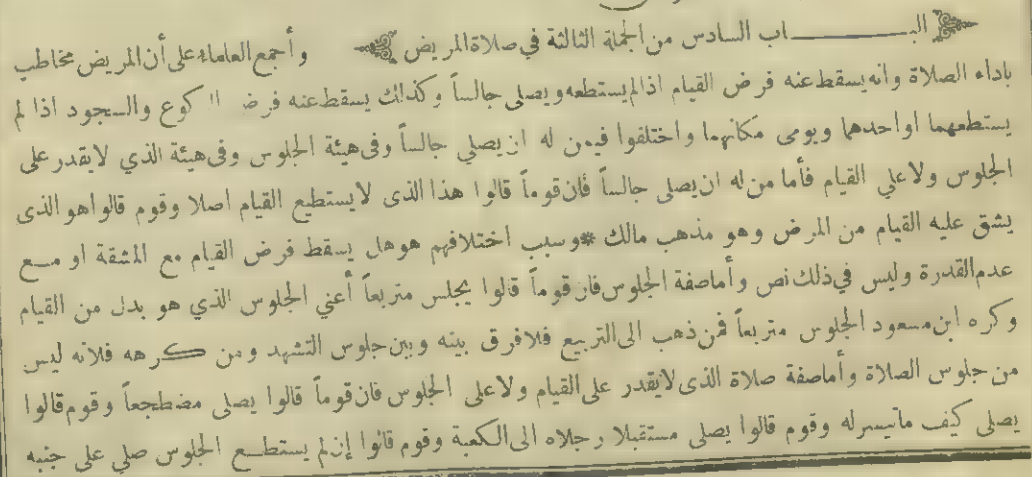 البـــاب السادس من الجملة الثالثة في صلاة المريض وأجمع العلماء على أن المريض مخاطب
باداء الصلاة وانه يسقط عنه فرض القيام اذا لم يستطعه ويصلى جالساً وكذلك يسقط عنه فرض الركوع والسجود اذا لم
يستطعهما اواحدهما ويومى مكانهما واختلفوا فيمن له ان يصلي جالساً وفى هيئة الجلوس وفى هيئة الذي لايقدر على
الجلوس ولاعلي القيام فأما من له ان يصلى جالساً فان قوماً قالوا هذا الذى لايستطيع القيام اصلا وقوم قالوا هو الذى
يشق عليه القيام من المرض وهو مذهب مالك *وسبب اختلافهم هو هل يسقط فرض القيام مع المشقة او مـع
عدم القدرة وليس في ذلك نص وأماصفة الجلوس فان قوماً قالوا يجلس متربعاً أعني الجلوس الذي هو بدل من القيام
وكره ابن مسعود الجلوس متربعاً فمن ذهب الى التربيع فلافرق بينه وبين جلوس التشهد ومن كرهه فلانه ليس
من جلوس الصلاة وأماصفة صلاة الذى لايقدر على القيام ولاعلى الجلوس فان قوماً قالوا يصلى مضطجعاً وقوم قالوا
يصلى كيف ماتيسر له وقوم قالوا يصلى مستقبلا رجلاه الى الكعبة وقوم قالوا إن لم يستطـع الجلوس صلي على جنبه